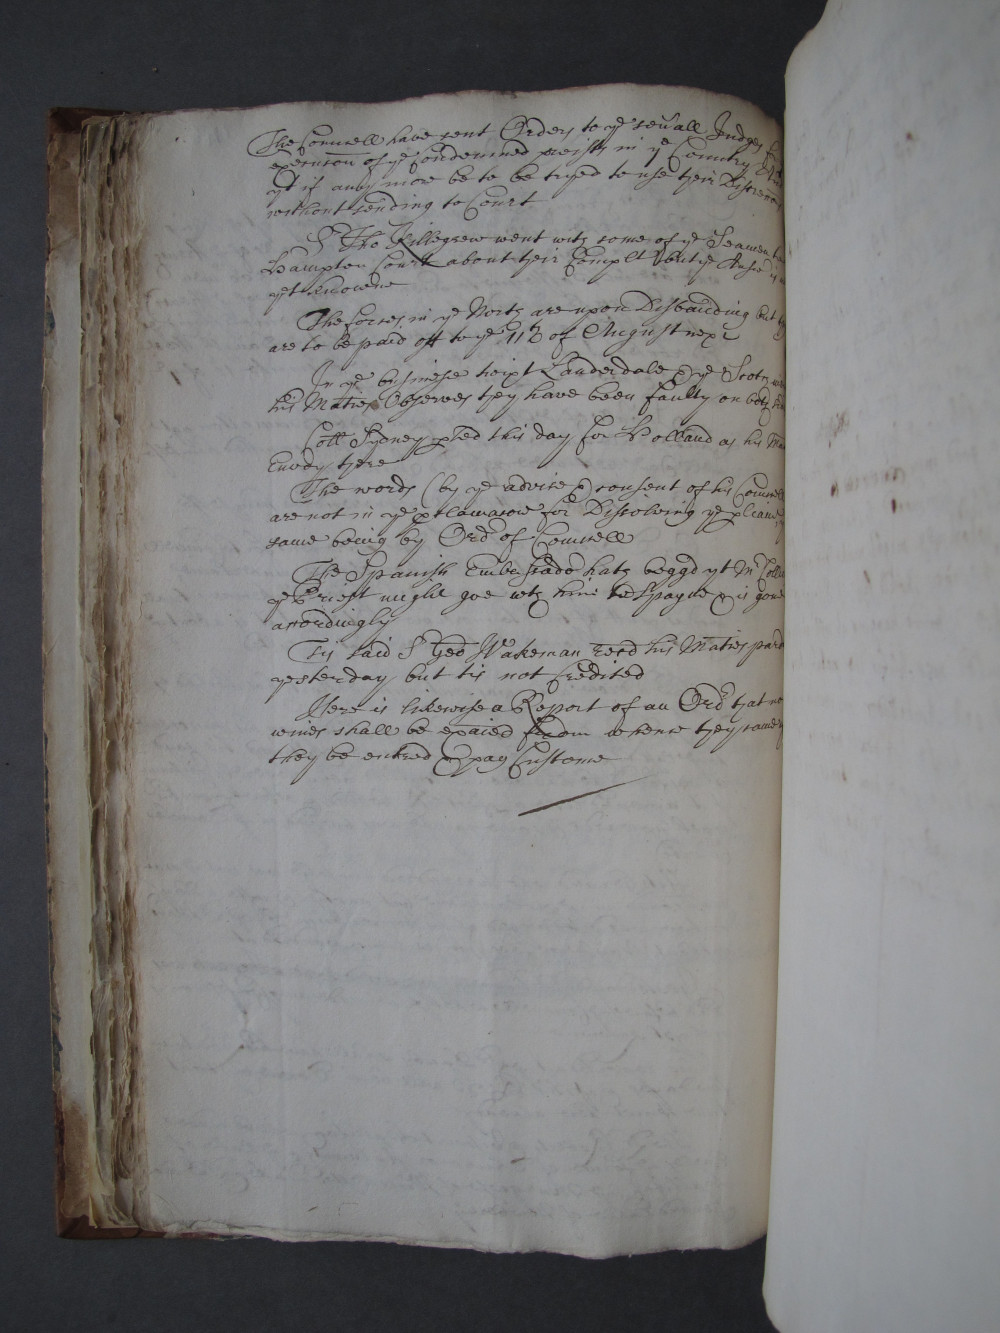 The Councell have sent Orders to ye seuall Judges
execucon of ye Condemned preists in ye Country
yt if any more be to be tryed to use their Discrecon
without sending to Court
Sr Tho Killegrew went with some of ye Seamen
Hampton Court about their Complt but ye Answ is
yet knowne
The forces in ye North are upon Disbanding but
are to be paid off to ye 11th of August next
In ye businesse twixt Lauderdale & ye Scots
his Matie Observes they have been faulty on both
Coll Sydney pted this day for Holland as his
Envoy there
The words (by ye advise & consent of his Councell
are not in ye pclamacon for Dissolving ye pliamt
same being by Ordr of Councell
The Spanish Embassador hath beggd yt Mr
ye Priest might goe wth him to Spayne & is gone
accordingly
Tis said Sr Geo Wakeman recd his Maties
yesterday but tis not Credited
Here is likewise a Report of an Ordr that no
wines shall be expcted from whence they came
they be entred & pay Custome